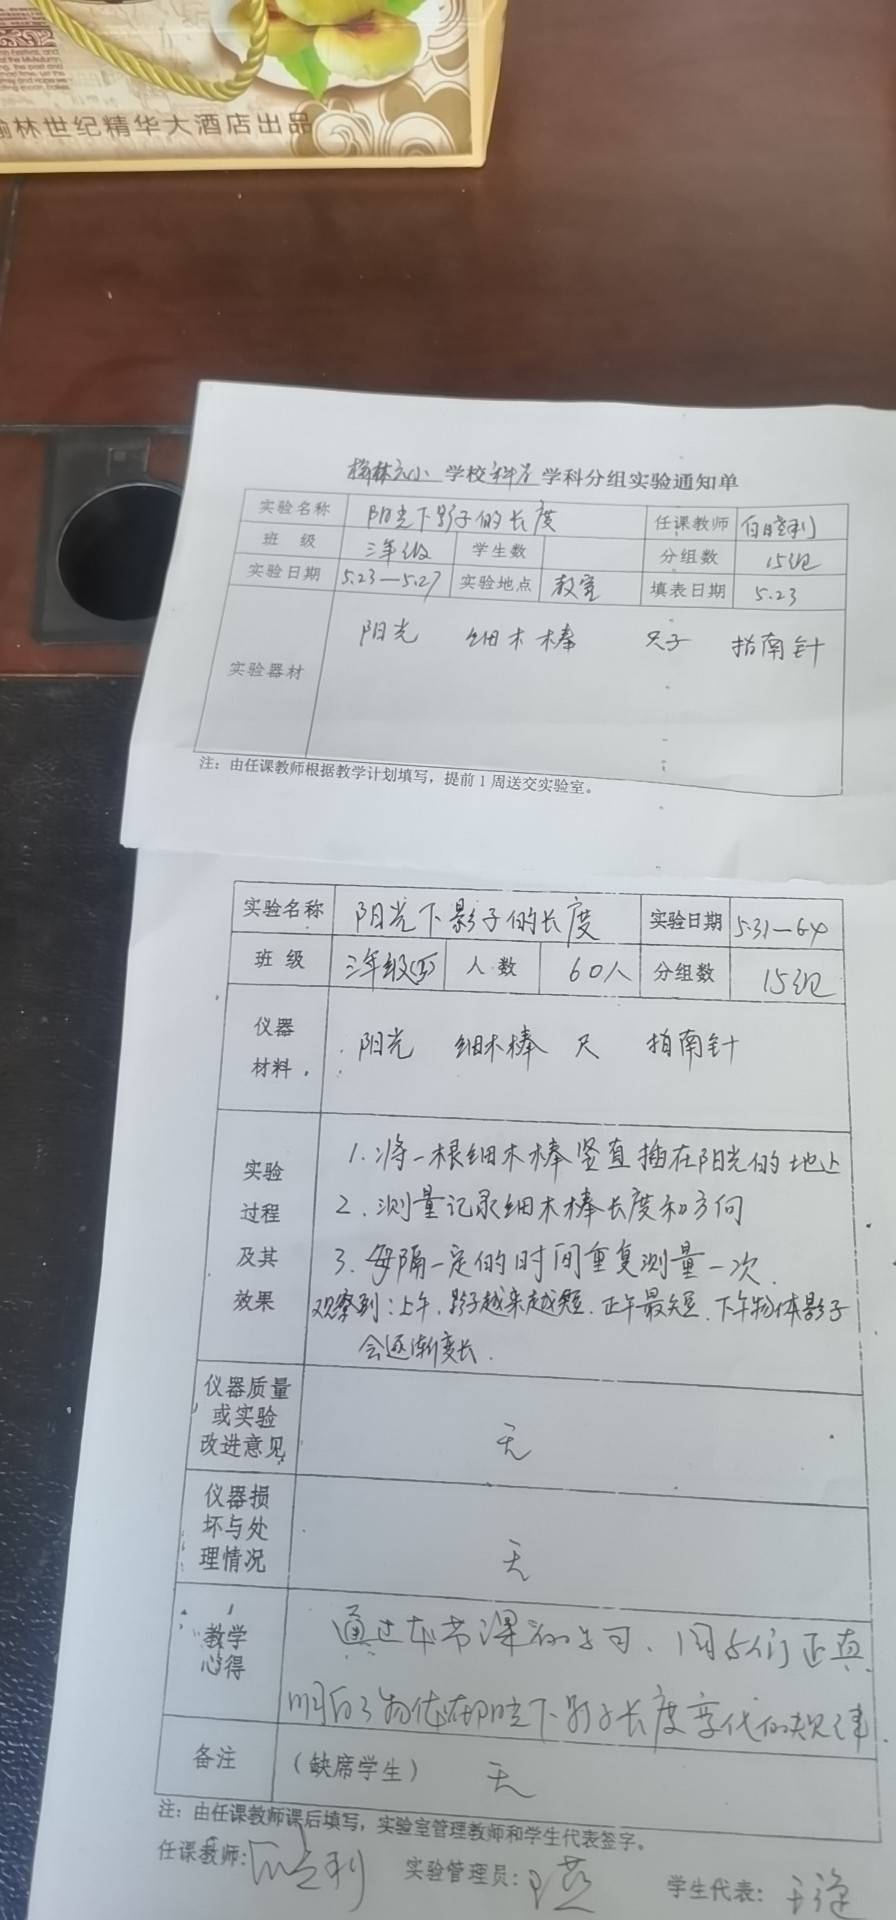 榆林世纪精华大酒店出品
学校 学科分组实验通知单
实验名称 阳光下影子的长度 任课教师
班 级 三年级 学生数 分组数 15组
实验日期 5.23—5.27 实验地点 教室 填表日期 5.23
实验器材 阳光 细木棒 尺子 指南针
注：由任课教师根据教学计划填写，提前1周送交实验室。
实验名称 阳光下影子的长度 实验日期 5.31—6.4
班 级 三年级 人 数 60人 分组数 15组
仪器
材料 阳光 细木棒 尺 指南针
实验
过程
及其
效果
1.将一根细木棒竖直插在阳光的地上
2.测量记录细木棒长度和方向
3.每隔一定的时间重复测量一次.
观察到：上午，影子越来越短.正午最短.下午物体影子
会逐渐变长.
仪器质量
或实验
改进意见 无
仪器损
坏与处
理情况 无
教学
心得
通过本节课的学习、同学们正真
明白了物体在阳光下影子长度变化的规律.
备注 （缺席学生） 无
注：由任课教师课后填写，实验室管理教师和学生代表签字。
任课教师：
实验管理员：
学生代表：